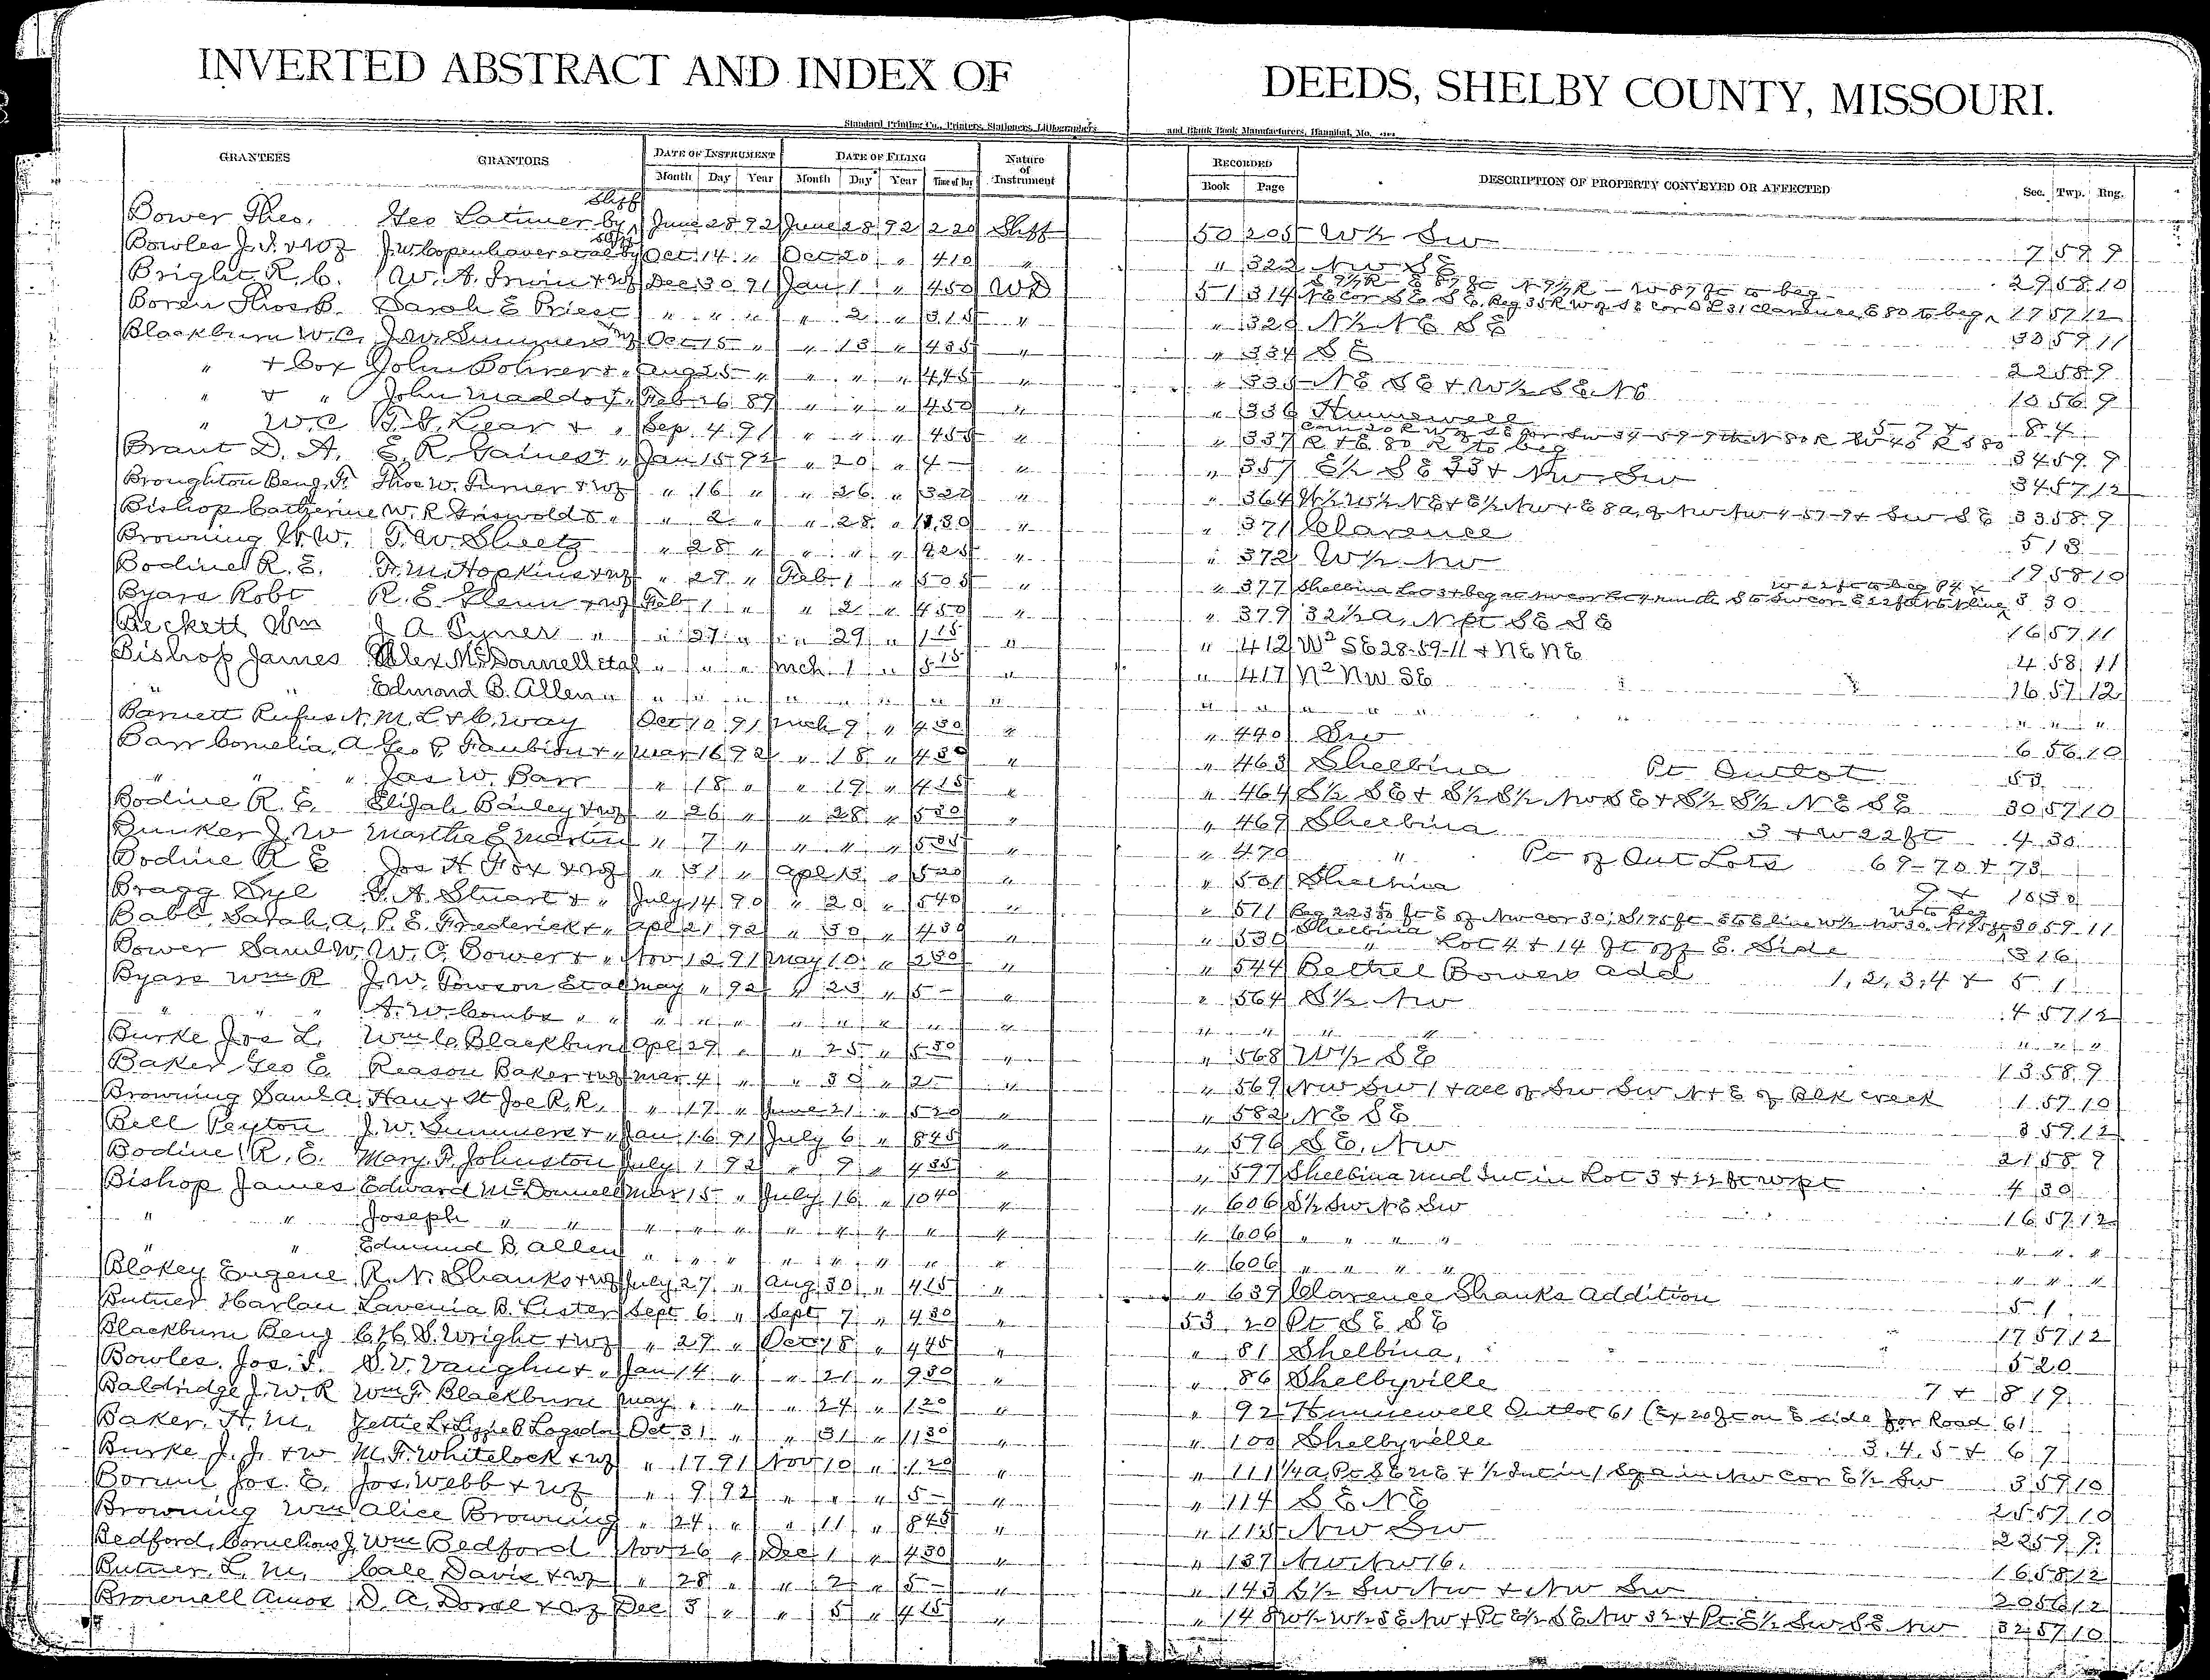 INVERTED ABSTRACT AND INDEX OF DEEDS, SHELBY COUNTY, MISSOURI.
Standard Printing Co., Printers, Stationers, Lithographers and Blank Book Manufacturers, Hannibal, Mo.
GRANTEES GRANTORS DATE OF INSTRUMENT DATE OF FILING Nature of Instrument RECORDED DESCRIPTION OF PROPERTY CONVEYED OR AFFECTED Sec. Twp. Rng.
Month Day Year Month Day Year Time of Day Book Page
Bower Theo. Geo Latimer by Shff June 28 92 June 28 92 2 20 Shff 50 205 W½ SW 7 59 9
Bowles J. T. & Wf J.W. Copenhaver et al by Shff Oct 14 " Oct 20 " 4 10 " " 322 NW SE 29 58 10
Bright R. C. W. A. Irwin & Wf Dec 30 91 Jan 1 " 4 50 WD 51 314 NE Cor SE SE, Beg 35R W of SE Cor OL 31 Clarence, E 80 to beg 17 57 12
Boren Thos B. Sarah E Priest " " " " 2 " 3 15 " " 320 N½ NE SE 30 59 11
Blackburn W.C. J.W. Summers & Wf Oct 15 " " 13 " 4 35 " " 334 SE 22 58 9
" & Cox John Bohrer & " Aug 25 " " " " 4 45 " " 335 NE SE & W½ SE NE 10 56 9
" & " John Maddox & " Feb 26 89 " " " 4 50 " " 336 Hunnewell 5-7 & 8 4
" W.C B.F. Lear & " Sep 4 91 " " " 4 55 " " 337 R & E 80 R to beg 34 59 9
Brant D. A. E. R. Gaines & " Jan 15 92 " 20 " 4 - " " 357 E½ SE 33 & NW SW 34 57 12
Broughton Benj. F. Thos W. Turner & Wf " 16 " " 26 " 3 20 " " 364 W½ W½ NE & E½ NW & E 8a. of NW NW 4-57-9 & SW SE 33 58 9
Bishop Catherine W. R Griswold & " " 2 " " 28 " 11 30 " " 371 Clarence 5 13
Browning H.W. T. W. Sheetz " 28 " " " " 4 25 " " 372 W½ NW 19 58 10
Bodine R. E. F. M. Hopkins & Wf " 29 " Feb 1 " 5 05 " " 377 Shelbina 3 30
Byars Robt R. E. Glenn & Wf Feb 1 " " 2 " 4 50 " " 379 32½ a, N pt SE SE 16 57 11
Beckett Wm J A Pyner " " 27 " " 29 " 1 15 " " 412 W² SE 28-59-11 & NE NE 4 58 11
Bishop James Alex McDonnell et al " " " Mch 1 " 5 15 " " 417 N² NW SE 16 57 12
" " Edmond B. Allen " " " " " " " " " " " " " " " " "
Barnett Rufus N. M. L. & C. Way Oct 10 91 Mch 9 " 4 30 " " 440 SW 6 56 10
Barr Cornelia, A Geo P. Faubion & " Mar 16 92 " 18 " 4 30 " " 463 Shelbina Pt Outlot 53
" " " Jas W. Barr " 18 " " 19 " 4 15 " " 464 S½ SE & S½ S½ NW SE & S½ S½ NE SE 30 57 10
Bodine R. E. Elijah Bailey & Wf " 26 " " 28 " 5 30 " " 469 Shelbina 3 & W 22 ft 4 30
Bunker J. W Martha E Martin " 7 " " " " 5 35 " " 470 " Pt of Out Lots 69-70 & 73
Bodine R E Jos H Fox & Wf " 31 " Apl 13 " 5 20 " " 501 Shelbina 9 & 10 30
Bragg Syl F. A. Stuart & " July 14 90 " 20 " 5 40 " " 511 30 59 11
Babb Sarah, A, P. E. Frederick & " Apl 21 92 " 30 " 4 30 " " 530 Shelbina Lot 4 & 14 ft off E. Side 3 16
Bower Saml W. W. C. Bower & " Nov 12 91 May 10 " 2 30 " " 544 Bethel Bowers Add 1, 2, 3, 4 & 5 1
Byars Wm R J. W. Towson et al May " 92 " 23 " 5 - " " 564 S½ NW 4 57 12
" " " A. W. Combs " " " " " " " " " " " " " " " " "
Burke Jos L. Wm C. Blackburn Apl 29 " " 25 " 5 30 " " 568 W½ SE 13 58 9
Baker Geo E. Reason Baker & Wf Mar 4 " " 30 " 2 - " " 569 NW SW 1 & all of SW SW N & E of Blk Creek 1 57 10
Browning Saml A. Han & St Joe R.R. " 17 " June 21 " 5 20 " " 582 NE SE 3 59 12
Bell Peyton J. W. Summers & " Jan 16 91 July 6 " 8 45 " " 596 SE, NW 21 58 9
Bodine R. E. Mary. F. Johnston July 1 92 " 9 " 4 35 " " 597 Shelbina und Int in Lot 3 & 22 ft W pt 4 30
Bishop James Edward McDonnell Mar 15 " July 16 " 10 40 " " 606 S½ SW NE SW 16 57 12
" " Joseph " " " " " " " " " " " 606 " " " " " " "
" " Edmund B. Allen " " " " " " " " " 606 " " " " " " "
Blakey Eugene R. N. Shanks & Wf July 27 " Aug 30 " 4 15 " " 639 Clarence Shanks Addition 5 1
Butner Harlan Lavenia B. Lister Sept 6 " Sept 7 " 4 30 " 53 20 Pt SE SE 17 57 12
Blackburn Benj C. H. S. Wright & Wf " 29 " Oct 18 " 4 45 " " 81 Shelbina, 5 20
Bowles. Jos. T. S. V. Vaughn & " Jan 14 " " 21 " 9 30 " " 86 Shelbyville 7 & 8 19
Baldridge J. W. R Wm F. Blackburn May " " " 24 " 1 20 " " 92 Hunnewell Outlot 61 (Ex 20 ft on E side for Road 61
Baker, H. M. Zettie L & Lizzie B Logsdon Oct 31 " " 31 " 11 30 " " 100 Shelbyville 3, 4, 5 & 6 7
Burke J. J. & W M. F. Whitelock & Wf " 17 91 Nov 10 " 1 20 " " 111 ¼ a, Pt SE NE & ½ Int in 1 Sq a in NW Cor E½ SW 3 59 10
Borum Jos. E. Jos. Webb & Wf " 9 92 " " " 5 - " " 114 SE NE 25 57 10
Browning Wm Alice Browning " 24 " " 11 " 8 45 " " 115 NW SW 22 59 9
Bedford, Cornelious J. Wm Bedford Nov 26 " Dec 1 " 4 30 " " 137 NW NW 16. 16 58 12
Butner L. M. Cale Davis & Wf " 28 " " 2 " 5 - " " 143 S½ SW NW & NW SW 20 56 12
Brownell Amos D. A. Dorse & Wf Dec 3 " " 5 " 4 15 " " 148 W½ W½ SE NW & Pt E½ SE NW 32 & Pt E½ SW SE NW 32 57 10